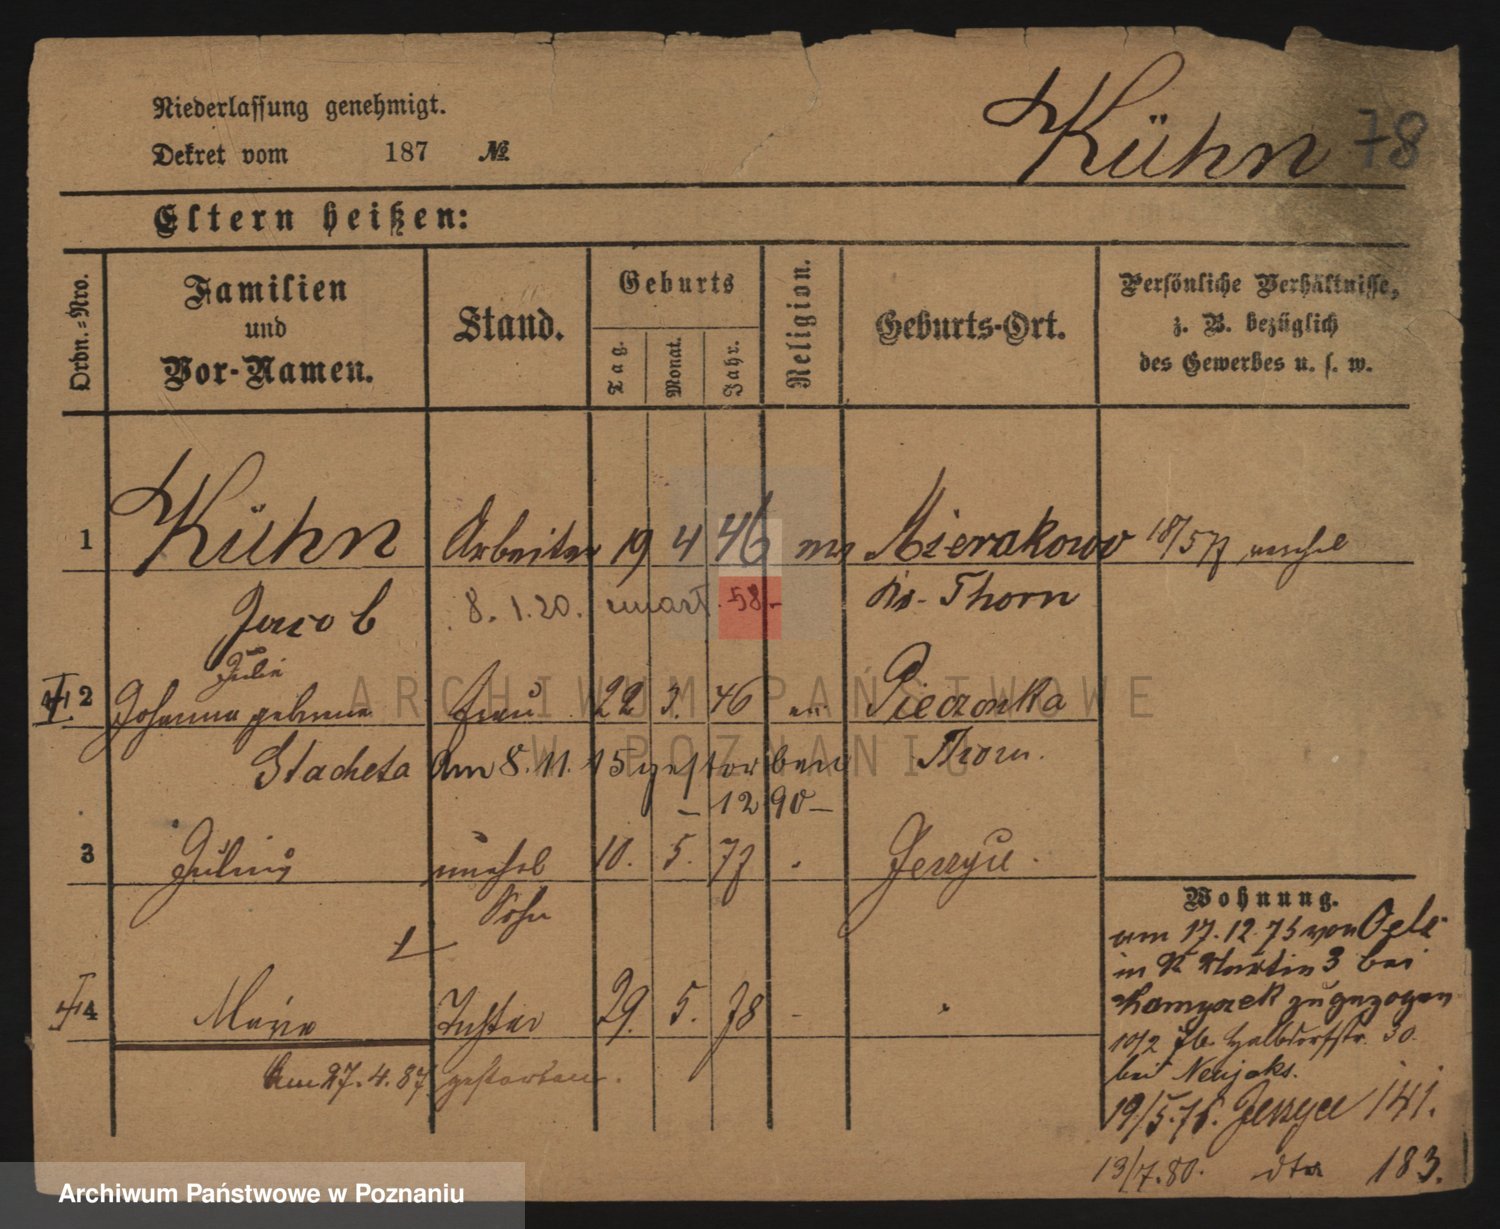 Niederlassung genehmigt.
Dekret vom 187 №
Kühn 78
Eltern heißen:
Ordn.-Nro.
Familien
und
Vor-Namen.
Stand.
Geburts
Tag.
Monat.
Jahr.
Religion.
Geburts-Ort.
Persönliche Verhältnisse,
z. B. bezüglich
des Gewerbes u. s. w.
1 Kühn Arbeiter 19 4 46 Mierakowo 18/5 77
Jacob 8.1.20. 58.- Kr. Thorn
Julie
2 Johanna geborene Frau 22 3. 46 Pieczonka
Stacheta Am 8.11.15 gestorben Thorn.
- 1290 -
3 Julius unehel 10. 5. 77 Jerzyce.
Sohn
4 Maria Tochter 29. 5. 78
Am 27.4.87. gestorben.
Wohnung.
am 17.12.75 von
in St Martin 3 bei
zugezogen
10/2 76. Halbdorfstr. 30.
bei
19/5.78. Jerzyce 141.
13/7.80. dto 183.
ARCHIWUM PAŃSTWOWE
W POZNANIU
Archiwum Państwowe w Poznaniu